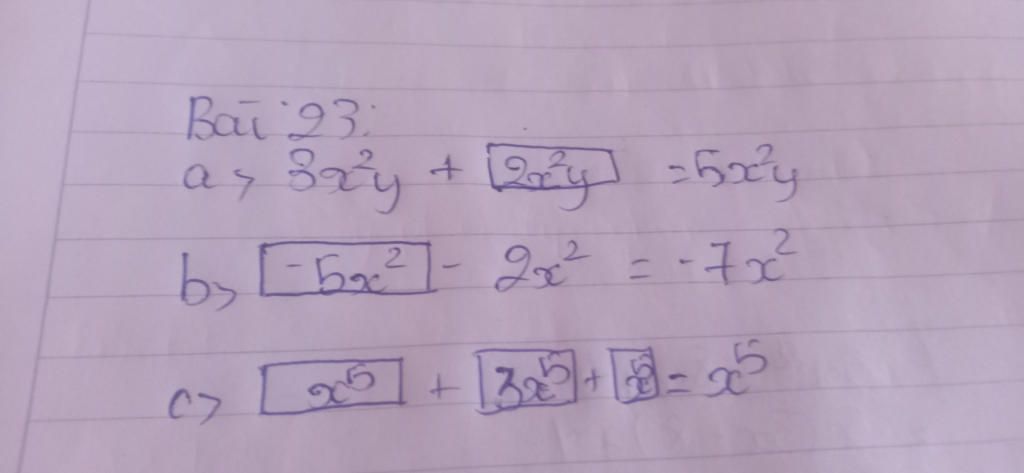 Bài 23:
a> 3x²y + 2x²y = 5x²y
b> -5x² - 2x² = -7x²
c> x⁵ + 3x⁵ + x⁵ = x⁵